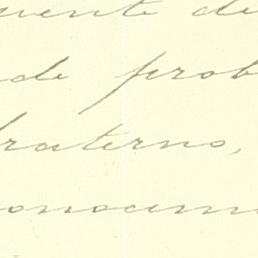 uente de
de prob
fraterno,
onocim